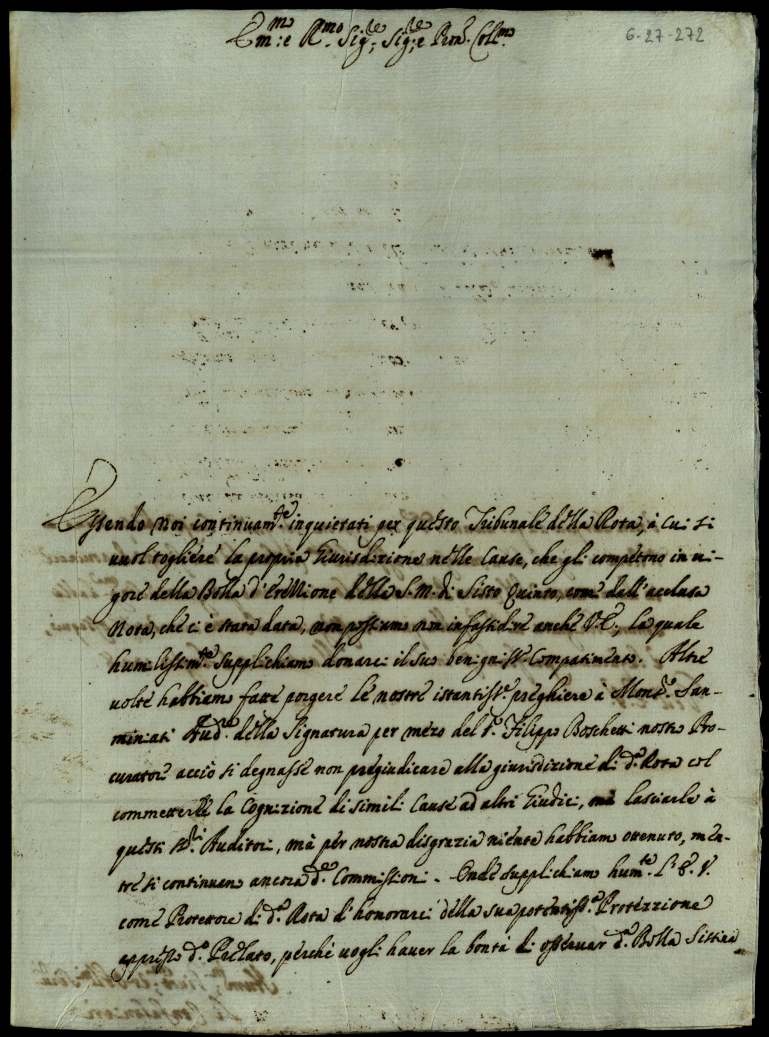 Em:mo e R.mo Sig:re, Sig:re e Pron. Coll.mo
6-27-272
Essendo noi continuam.te inquietati per questo Tribunale della Rota, à cui si
vuol togliere la propria Giurisdizione nelle Cause, che gli competono in vi-
gore della Bolla d'Erettione della S. M. di Sisto Quinto, come dall'acclusa
Nota, che ci è stata data, non possiamo non infastidire anche V. E., la quale
humilissim.te supplichiamo donarci il suo benigniss.o Compatimento. Altre
volte habbiamo fatte porgere le nostre istantiss.e preghiere à Mons.r San-
miniati Aud.re della Signatura per mezo del S.r Filippo Boschetti nostro Pro-
curatore acciò si degnasse non pregiudicare alla giurisdizione di d.a Rota col
commettere la Cognizione di simili Cause ad altri Giudici, mà lasciarle à
questi SS.ri Auditori, mà per nostra disgrazia niente habbiamo ottenuto, men-
tre si continuano ancora d.e Commissioni. Onde supplichiamo hum.te l'E. V.
come Protettore di d.a Rota d'honorarci della sua potentiss.a Protezzione
appresso d.o Prelato, perchè vogli haver la bontà di osservar d.a Bolla Sistina